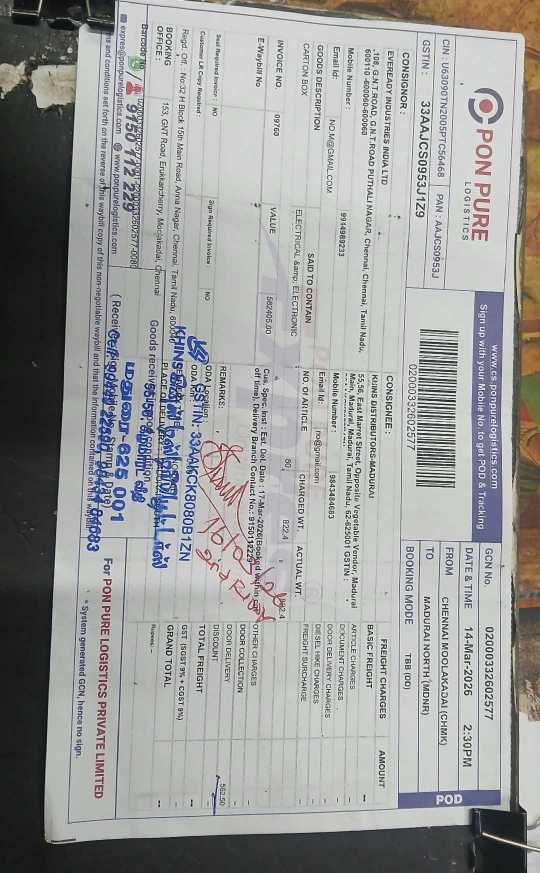 PON PURE
LOGISTICS
www.cs.ponpurelogistics.com
Sign up with your Mobile No. to get POD & Tracking
CIN : U63090TN2005PTC56468 PAN : AAJCS0953J
GSTIN : 33AAJCS0953J1Z9
02000332602577
GCN No. 02000332602577
DATE & TIME 14-Mar-2026 2:30PM
FROM CHENNAI MOOLAKADAI (CHMK)
TO MADURAI NORTH (MDNR)
BOOKING MODE TBB (00)
POD
CONSIGNOR :
EVEREADY INDUSTRIES INDIA LTD
,108, G.N.T.ROAD, G.N.T.ROAD PUTHALI NAGAR, Chennai, Chennai, Tamil Nadu,
600110 -600060-600060
Mobile Number : 9914989233
Email Id: NO.M@GMAIL.COM
CONSIGNEE :
KHINS DISTRIBUTORS-MADURAI
55,56, East Marret Street, Opposite Vegetable Vendor, Madurai
Main, Madurai, Madurai, Tamil Nadu, 62-625001 GSTIN :
Mobile Number : 9843484683
Email Id: no@gmail.com
GOODS DESCRIPTION SAID TO CONTAIN NO. OF ARTICLE CHARGED WT. ACTUAL WT.
CARTON BOX ELECTRICAL &amp; ELECTRONIC 50 822.4
INVOICE NO. 09760 VALUE 562405.00
E-Waybill No
Cus. Spec. Inst : Est. Del. Date : 17-Mar-2026(Booked within cut
off time) Delivery Branch Contact No.: 9150112229
REMARKS:
Seal Required Invoice : NO Sign Required Invoice : NO
Customer LR Copy Required
ODA Location
ODA
Regd. Off. : No:32 H Block 15th Main Road, Anna Nagar, Chennai, Tamil Nadu, 600040
BOOKING OFFICE : 153, GNT Road, Erukkancherry, Moolakadai, Chennai
PLACE OF DELIVERY
FREIGHT CHARGES AMOUNT
BASIC FREIGHT --
ARTICLE CHARGES -
DOCUMENT CHARGES -
DOOR DELIVERY CHARGES -
DIESEL HIKE CHARGES -
FREIGHT SURCHARGE -
OTHER CHARGES -
DOOR COLLECTION -
DOOR DELIVERY -
DISCOUNT 562.50
TOTAL FREIGHT --
GST (SGST 9% + CGST 9%)
GRAND TOTAL --
Rupees: --
GSTIN: 33AAKCK8080B1ZN
மதுரை 625 001
16/03/26
Barcode No
9150 112 229
Goods received in good condition
expres@ponpurelogistics.com www.ponpurelogistics.com
conditions set forth on the reverse of this waybill copy of this non-negotiable waybill and that the information contained on this waybill
For PON PURE LOGISTICS PRIVATE LIMITED
* System generated GCN, hence no sign.